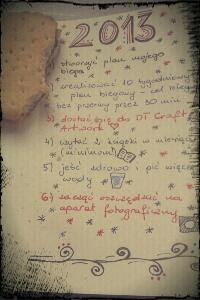 2013
stworzyć plan mojego
bloga
zrealizować 10 tygodniowy
plan biegowy - cel
bez przerwy przez 30 min.
3) dostać się do DT Craft
Artwork
4) czytać 2 książki w miesiącu
(minimum)
5) jeść zdrowo i pić więcej
wody
6) zacząć oszczędzać na
aparat fotograficzny